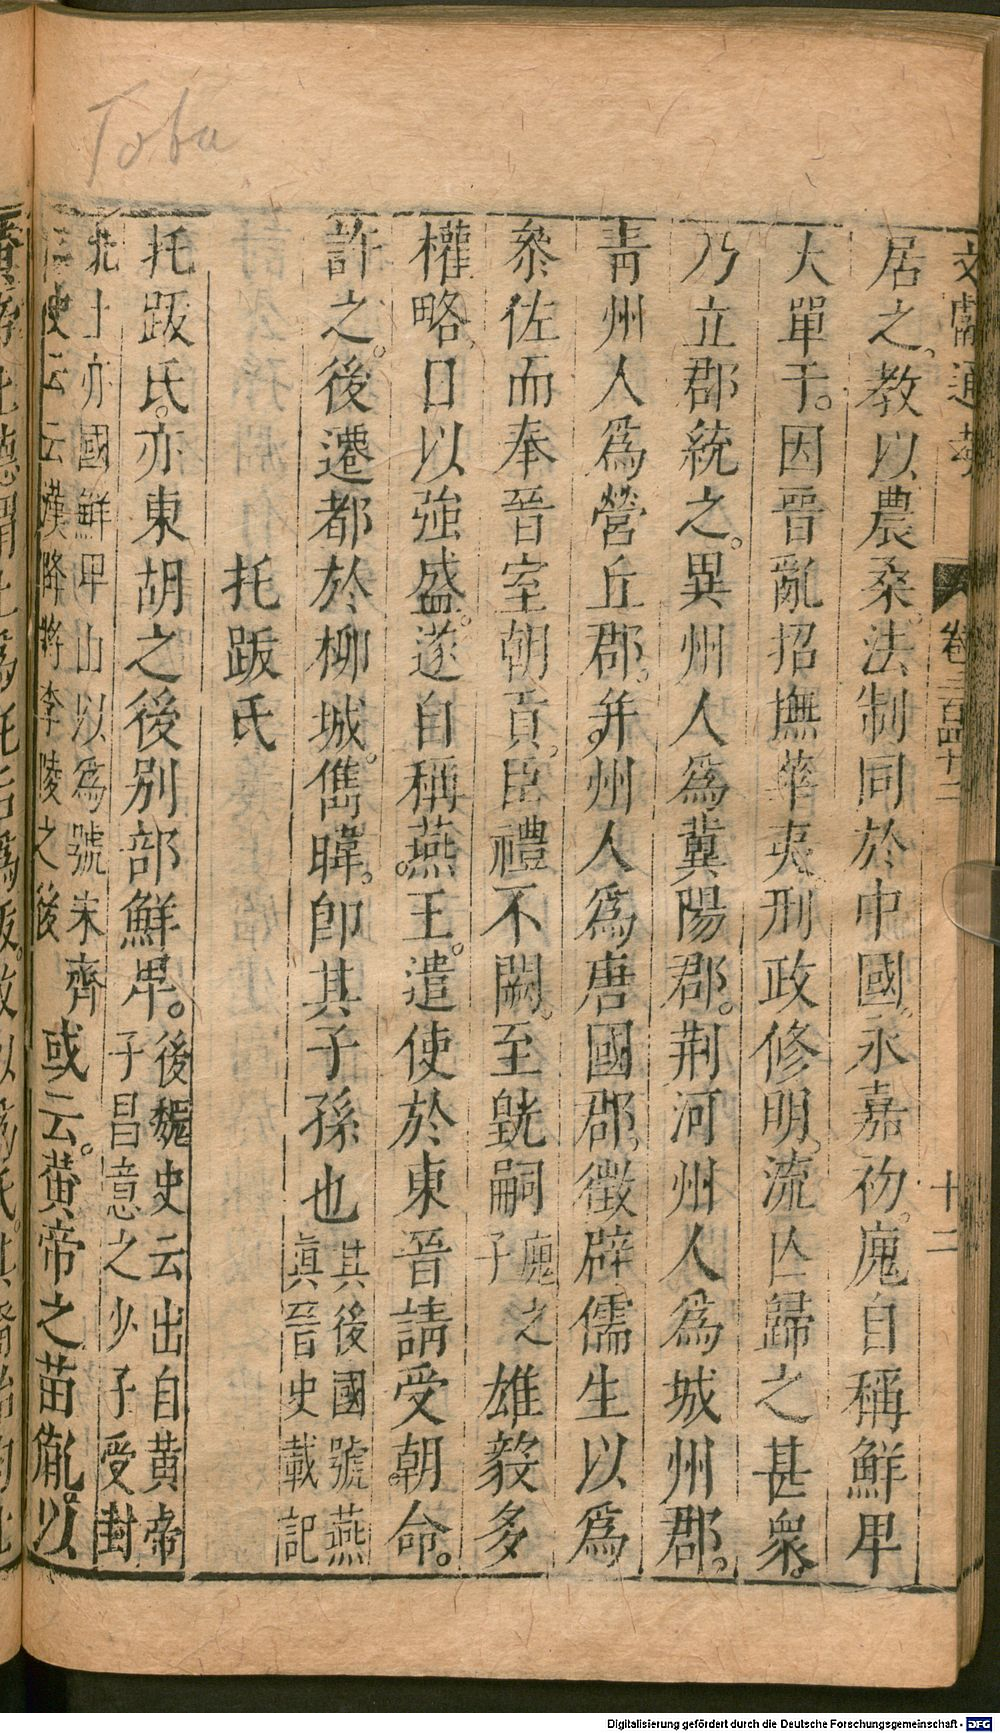 Toba
文獻通考 卷三百四十二 十二
居之教以農桑法制同於中國永嘉初廆自稱鮮卑
大單于因晉亂招撫華夷刑政修明流亾歸之甚衆
乃立郡統之異州人為冀陽郡荆河州人為城州郡
青州人為營丘郡并州人為唐國郡徵辟儒生以為
叅佐而奉晉室朝貢臣禮不闕至皝嗣廆之子雄毅多
權略日以強盛遂自稱燕王遣使於東晉請受朝命
許之後遷都於柳城雋暐即其子孫也其後國號燕
眞晉史載記
托跋氏
托跋氏亦東胡之後別部鮮卑後魏史云出自黃帝
子昌意之少子受封
北土亦國鮮卑山以為號宋齊
二史云云漢降將李陵之後或云黃帝之苗胤以
Digitalisierung gefördert durch die Deutsche Forschungsgemeinschaft - DFG